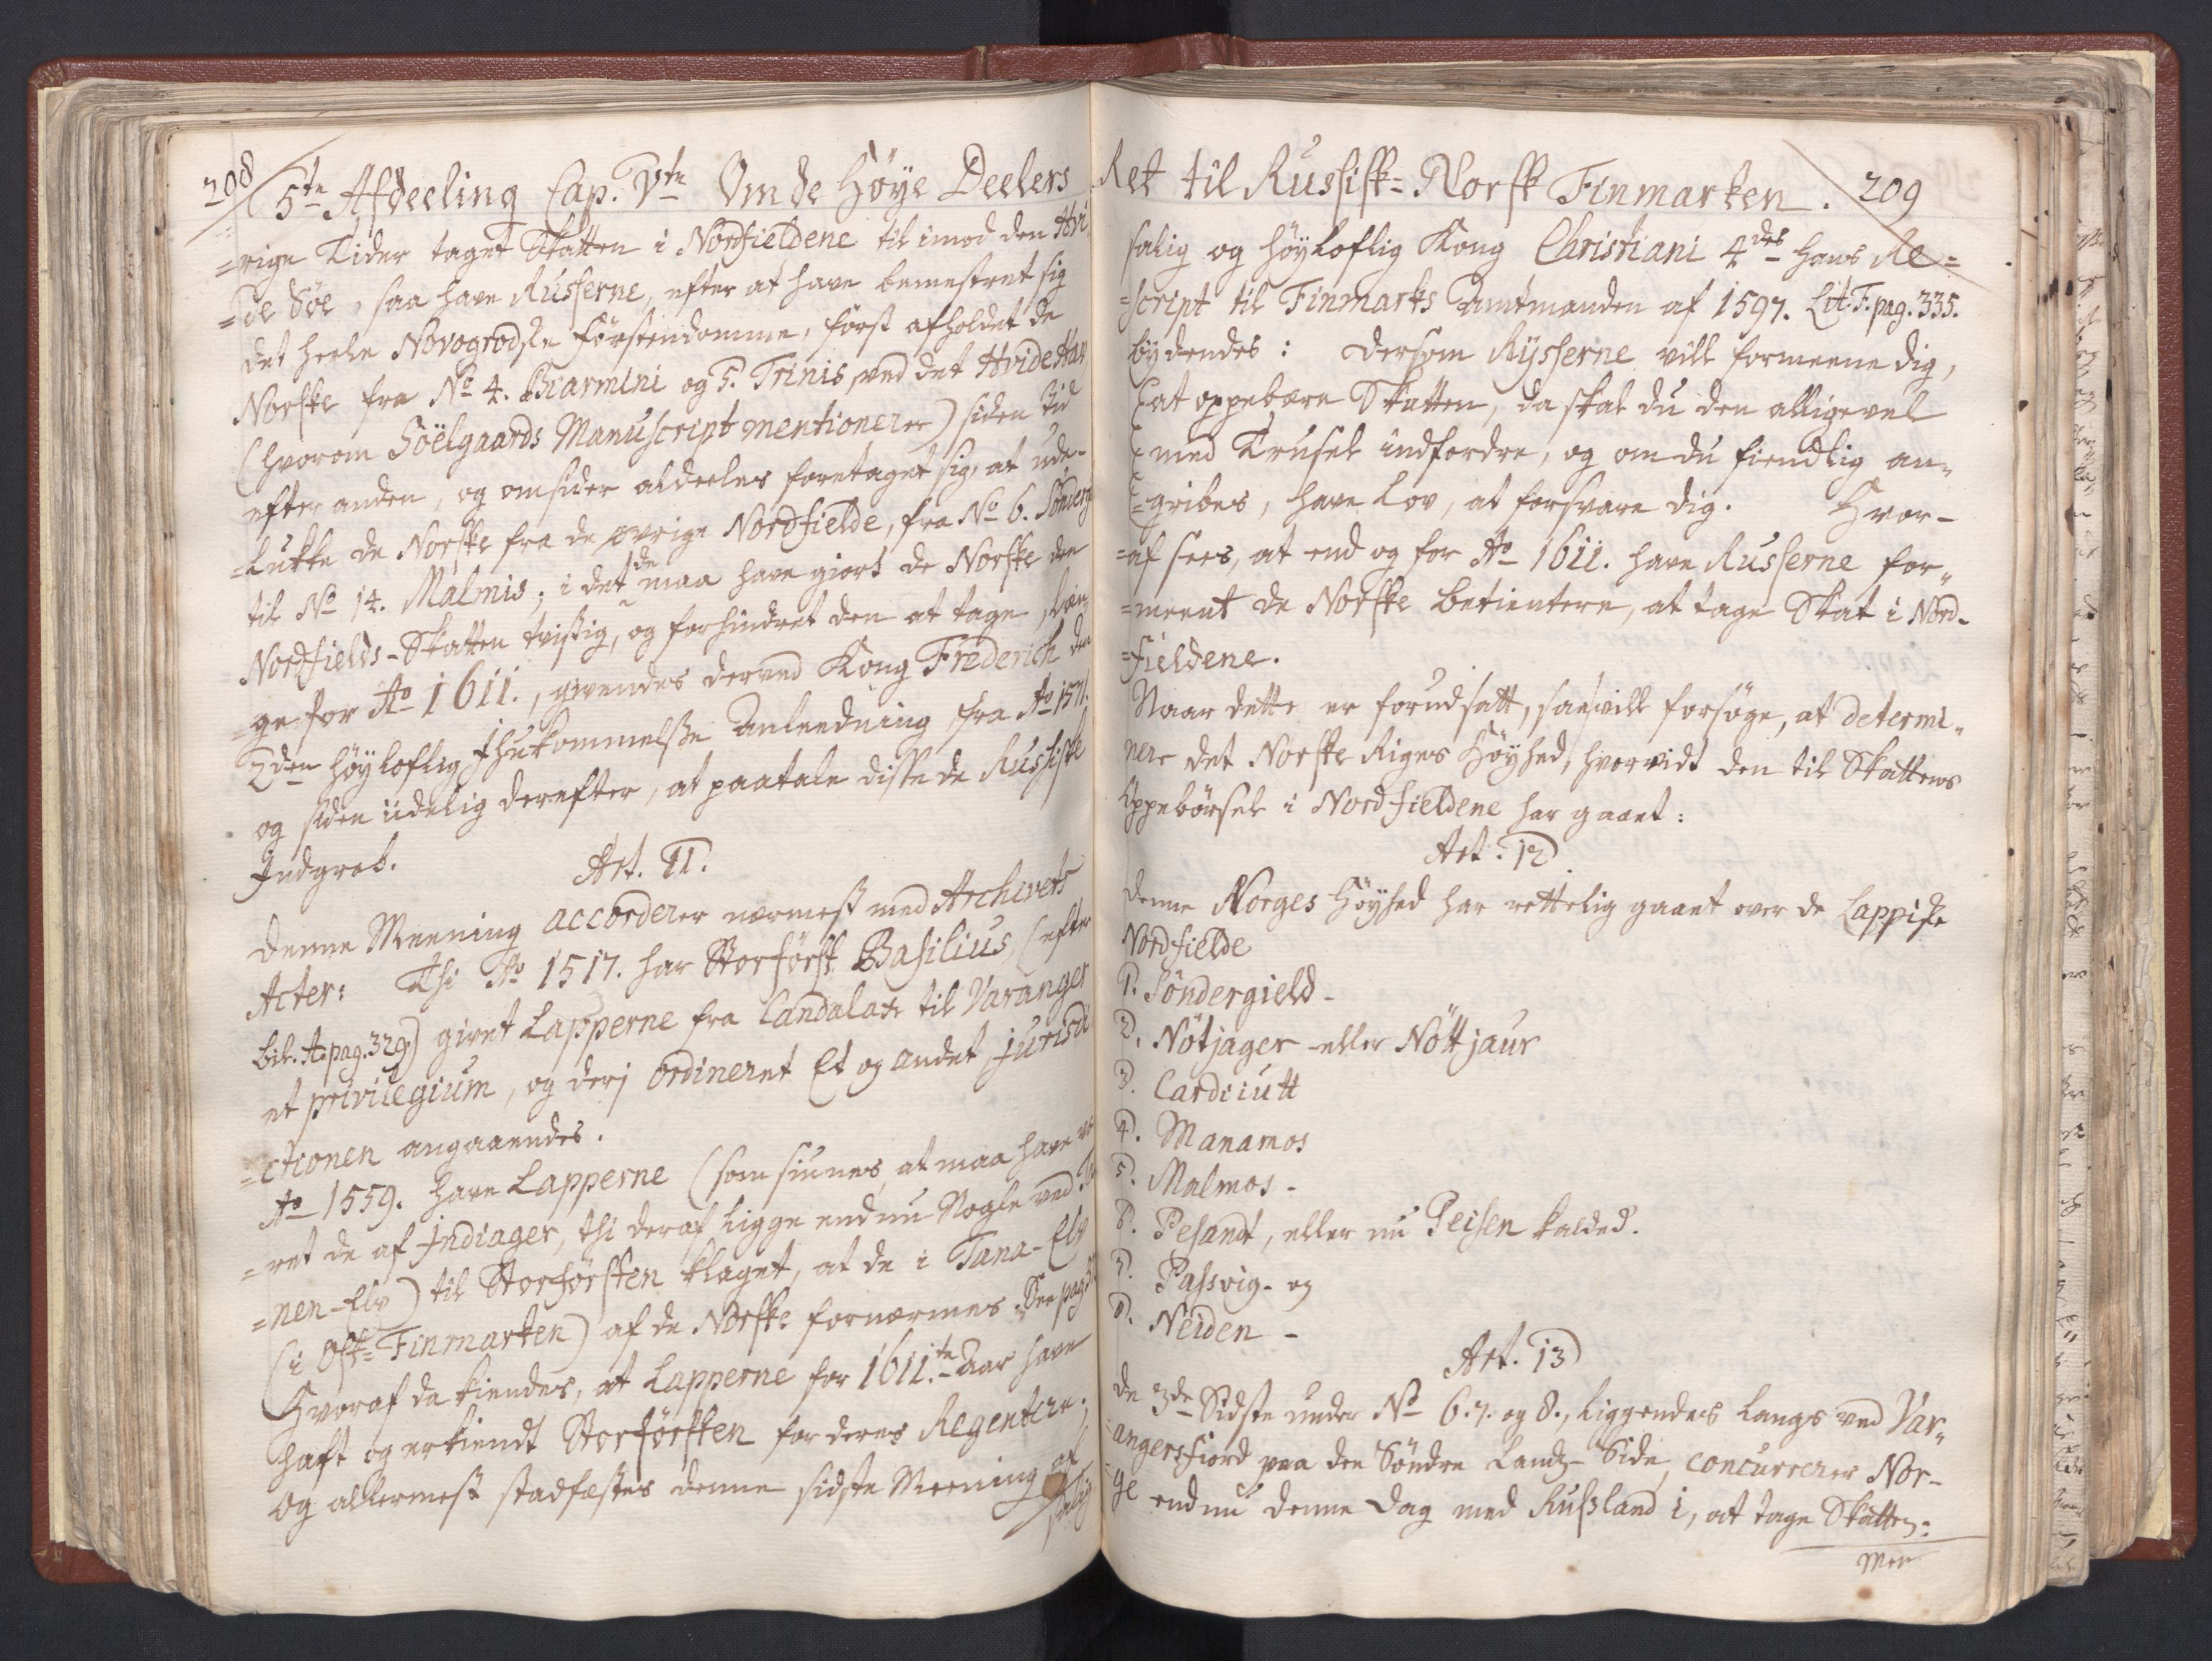 208
5te Afdeeling Cap. Vte Om de Høye Deelers
=rige Tider taget Skatten i Nordfieldene til imod den Hvi
=de Söe, saa have Russerne, efter at have bemestret sig
det heele Novogrodske Förstendomme, först afholdet de
Norske fra No 4. Biarmini og 5. Trinis, ved det Hvide Hav
(hvorom Soëlgaards Manuscript mentionerer) siden Tid
efter anden, og omsider aldeeles foretaget sig, at ude-
=lukke de Norske fra de øvrige Nordfielde, fra No 6. Sönderg
til No 14. Malmis; i det de maa have giort de Norske den
Nordfields-Skatten tvistig, og forhindret den at tage, læn-
=ge for Ao 1611., givendes derved Kong Frederich den
2den höyloflig Ihukommelse Anleedning fra Ao 1571.
og siden idelig derefter, at paatale disse de Russiske
Indgreb.
Art. 11.
Denne Meening accorderer nærmest med Archivets
Acter: Thi Ao 1517. har Storförst Basilius, (efter
Bil. A. pag. 329.) givet Lapperne fra Candalax til Varanger
et privilegium, og derj ordineret Et og andet jurisdi
=ctionen angaaendes.
Ao 1559. have Lapperne (som siunes, at maa have væ
=ret de af Indiager, thi deraf ligge endnu Nogle ved Ta
=nen-Elv) til Storförsten klaget, at de i Tana-Elv
(i Ost-Finmarken) af de Norske fornærmes. See pag.
Hvoraf da kiendes, at Lapperne for 1611.te Aar have
haft og erkiendt Storförsten for deres Regentere;
og allermest stadfæstes denne sidste Meening af
salig
Ret til Russisk-Norsk Finmarken. 209
salig og höyloflig Kong Christiani 4des Hans Re=
=script til Finmarks Amtmanden af 1597. Lit. F. pag. 335.
bydendes: Dersom Rysserne vill formeene dig,
at oppebære Skatten, da skal du den alligevel
med Trusel indfordre, og om du fiendtlig an-
=gribes, have Lov, at forsvare dig. Hvor-
=af sees, at end og for Ao 1611. have Russerne for-
=meent de Norske betientere, at tage Skat i Nord-
=fieldene.
Naar dette er forudsatt, saa vill forsöge, at determi-
nere det Norske Riges Höyhed, hvorvidt den til Skattens
Oppebörsel i Nordfieldene har gaaet:
Art. 12.
Denne Norges Höyhed har rettelig gaaet over de Lappiske
Nordfielde
1. Söndergield-
2. Nötjager eller Nöttjaur
3. Cardiiutt
4. Manamos
5. Malmos-
6. Pesandt, eller nu Peisen kalded.
7. Passvig- og
8. Neiden-
Art. 13
De 3de Sidste under No 6. 7. og 8., liggendes langs ved Var-
=angersfiord paa den Söndre Landz-Side, concurrerer Nor-
ge endnu denne Dag med Rusland i, at tage Skatten:
Men